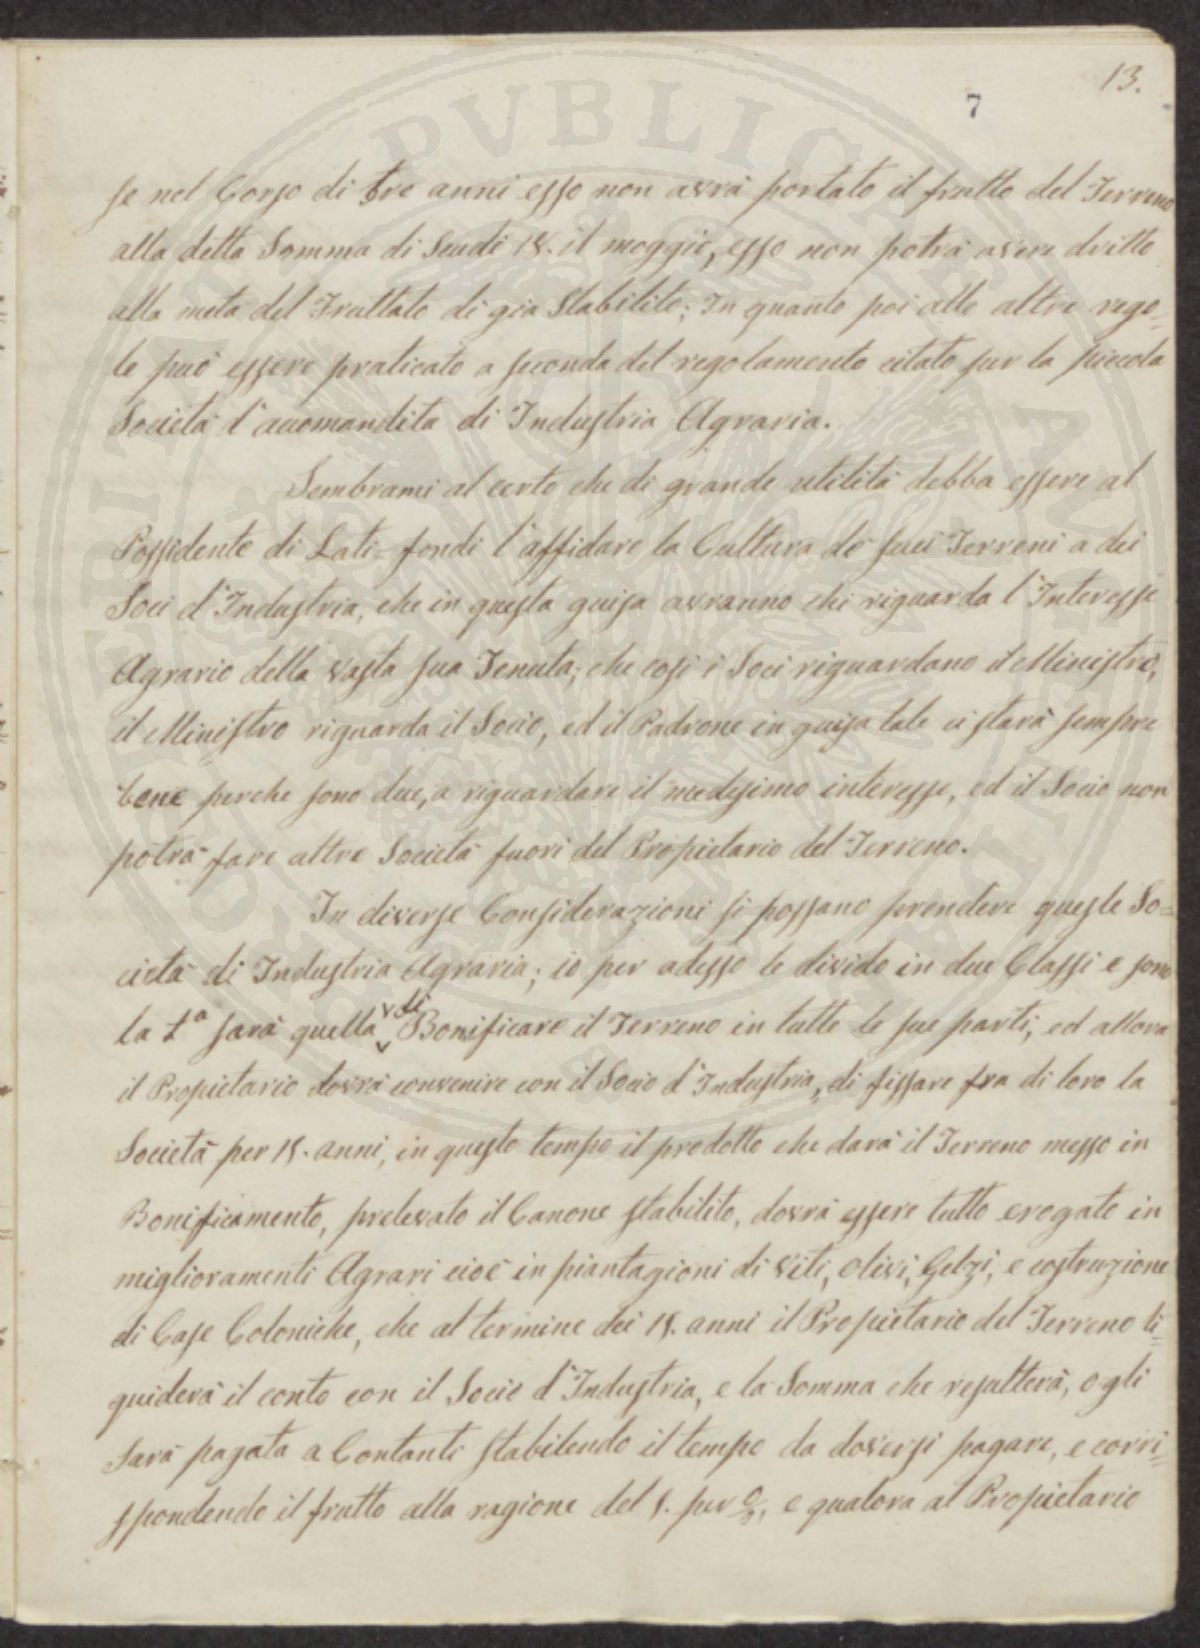 13.
7
se nel Corso di tre anni esso non avrà portato il frutto del Terreno
alla detta Somma di Scudi 15. il moggio, esso non potrà avere dritto
alla metà del Fruttato di già Stabilito; In quanto poi alle altre rego=
le può essere praticato a seconda del regolamento citato per la piccola
Società l'accomandita di Industria Agraria.
Sembrami al certo che di grande utilità debba essere al
Possidente di Lati=fondi l'affidare la Cultura de suoi Terreni a dei
Soci d'Industria, che in questa guisa avranno chi riguarda l'Interesse
Agrario della vasta sua Tenuta; che così i Soci riguardano il Ministro,
il Ministro riguarda il Socio, ed il Padrone in guisa tale ci starà sempre
bene perche sono due, a riguardare il medesimo interesse, ed il Socio non
potrà fare altre Società fuori del Propietario del Terreno.
In diverse Considerazioni si possano prendere queste So=
cietà di Industria Agraria; io per adesso le divido in due Classi e sono
la 1ª sarà quella di Bonificare il Terreno in tutte le sue parti, ed allora
il Propietario dovrà convenire con il Socio d'Industria, di fissare fra di loro la
Società per 15. anni, in questo tempo il prodotto che darà il Terreno messo in
Bonificamento, prelevato il Canone stabilito, dovrà essere tutto erogato in
miglioramenti Agrari cioè in piantagioni di Viti, Olivi, Gelzi, e costruzione
di Case Coloniche, che al termine dei 15. anni il Propietario del Terreno li=
quiderà il conto con il Socio d'Industria, e la Somma che resulterà, o gli
sarà pagata a Contanti stabilendo il tempo da doversi pagare, e corri=
spondendo il frutto alla ragione del 5. per %, e qualora al Propietario